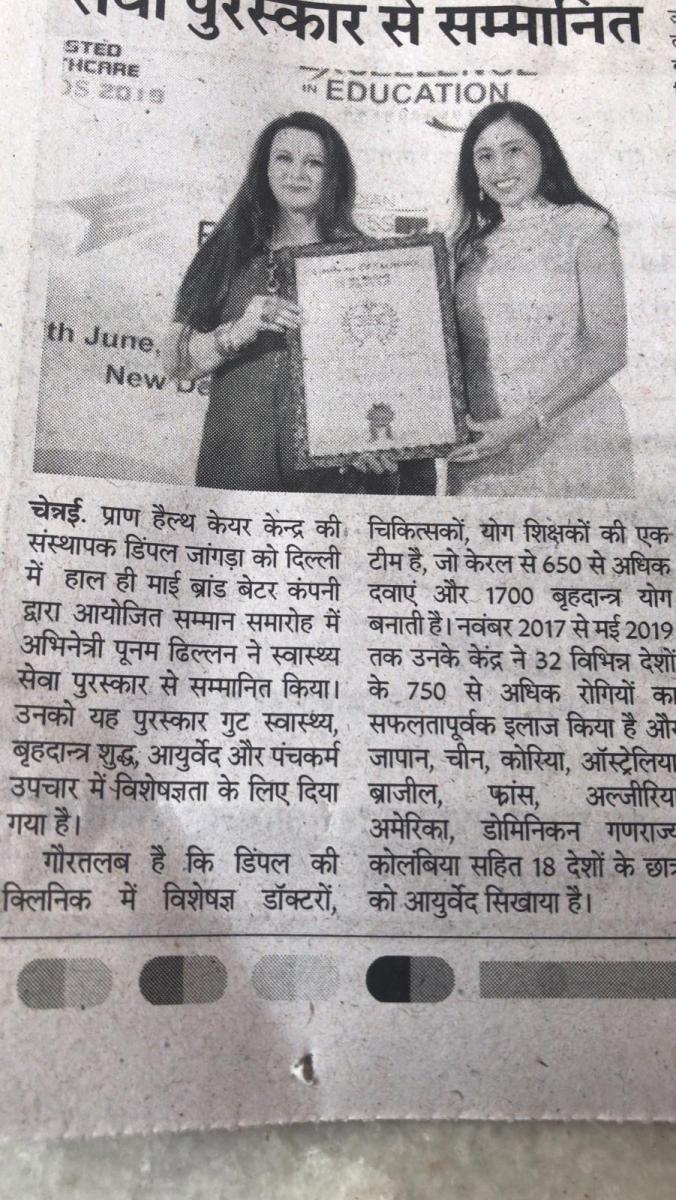 सेवा पुरस्कार से सम्मानित
STED
THCARE
DS 2019
EXCELLENCE
IN EDUCATION
th June,
New De
चेन्नई. प्राण हैल्थ केयर केन्द्र की
संस्थापक डिंपल जांगड़ा को दिल्ली
में हाल ही माई ब्रांड बेटर कंपनी
द्वारा आयोजित सम्मान समारोह में
अभिनेत्री पूनम ढिल्लन ने स्वास्थ्य
सेवा पुरस्कार से सम्मानित किया।
उनको यह पुरस्कार गुट स्वास्थ्य,
बृहदान्त्र शुद्ध, आयुर्वेद और पंचकर्म
उपचार में विशेषज्ञता के लिए दिया
गया है।
गौरतलब है कि डिंपल की
क्लिनिक में विशेषज्ञ डॉक्टरों,
चिकित्सकों, योग शिक्षकों की एक
टीम है, जो केरल से 650 से अधिक
दवाएं और 1700 बृहदान्त्र योग
बनाती है। नवंबर 2017 से मई 2019
तक उनके केंद्र ने 32 विभिन्न देशों
के 750 से अधिक रोगियों का
सफलतापूर्वक इलाज किया है और
जापान, चीन, कोरिया, ऑस्ट्रेलिया
ब्राजील, फ्रांस, अल्जीरिय
अमेरिका, डोमिनिकन गणराज्य
कोलंबिया सहित 18 देशों के छात्र
को आयुर्वेद सिखाया है।